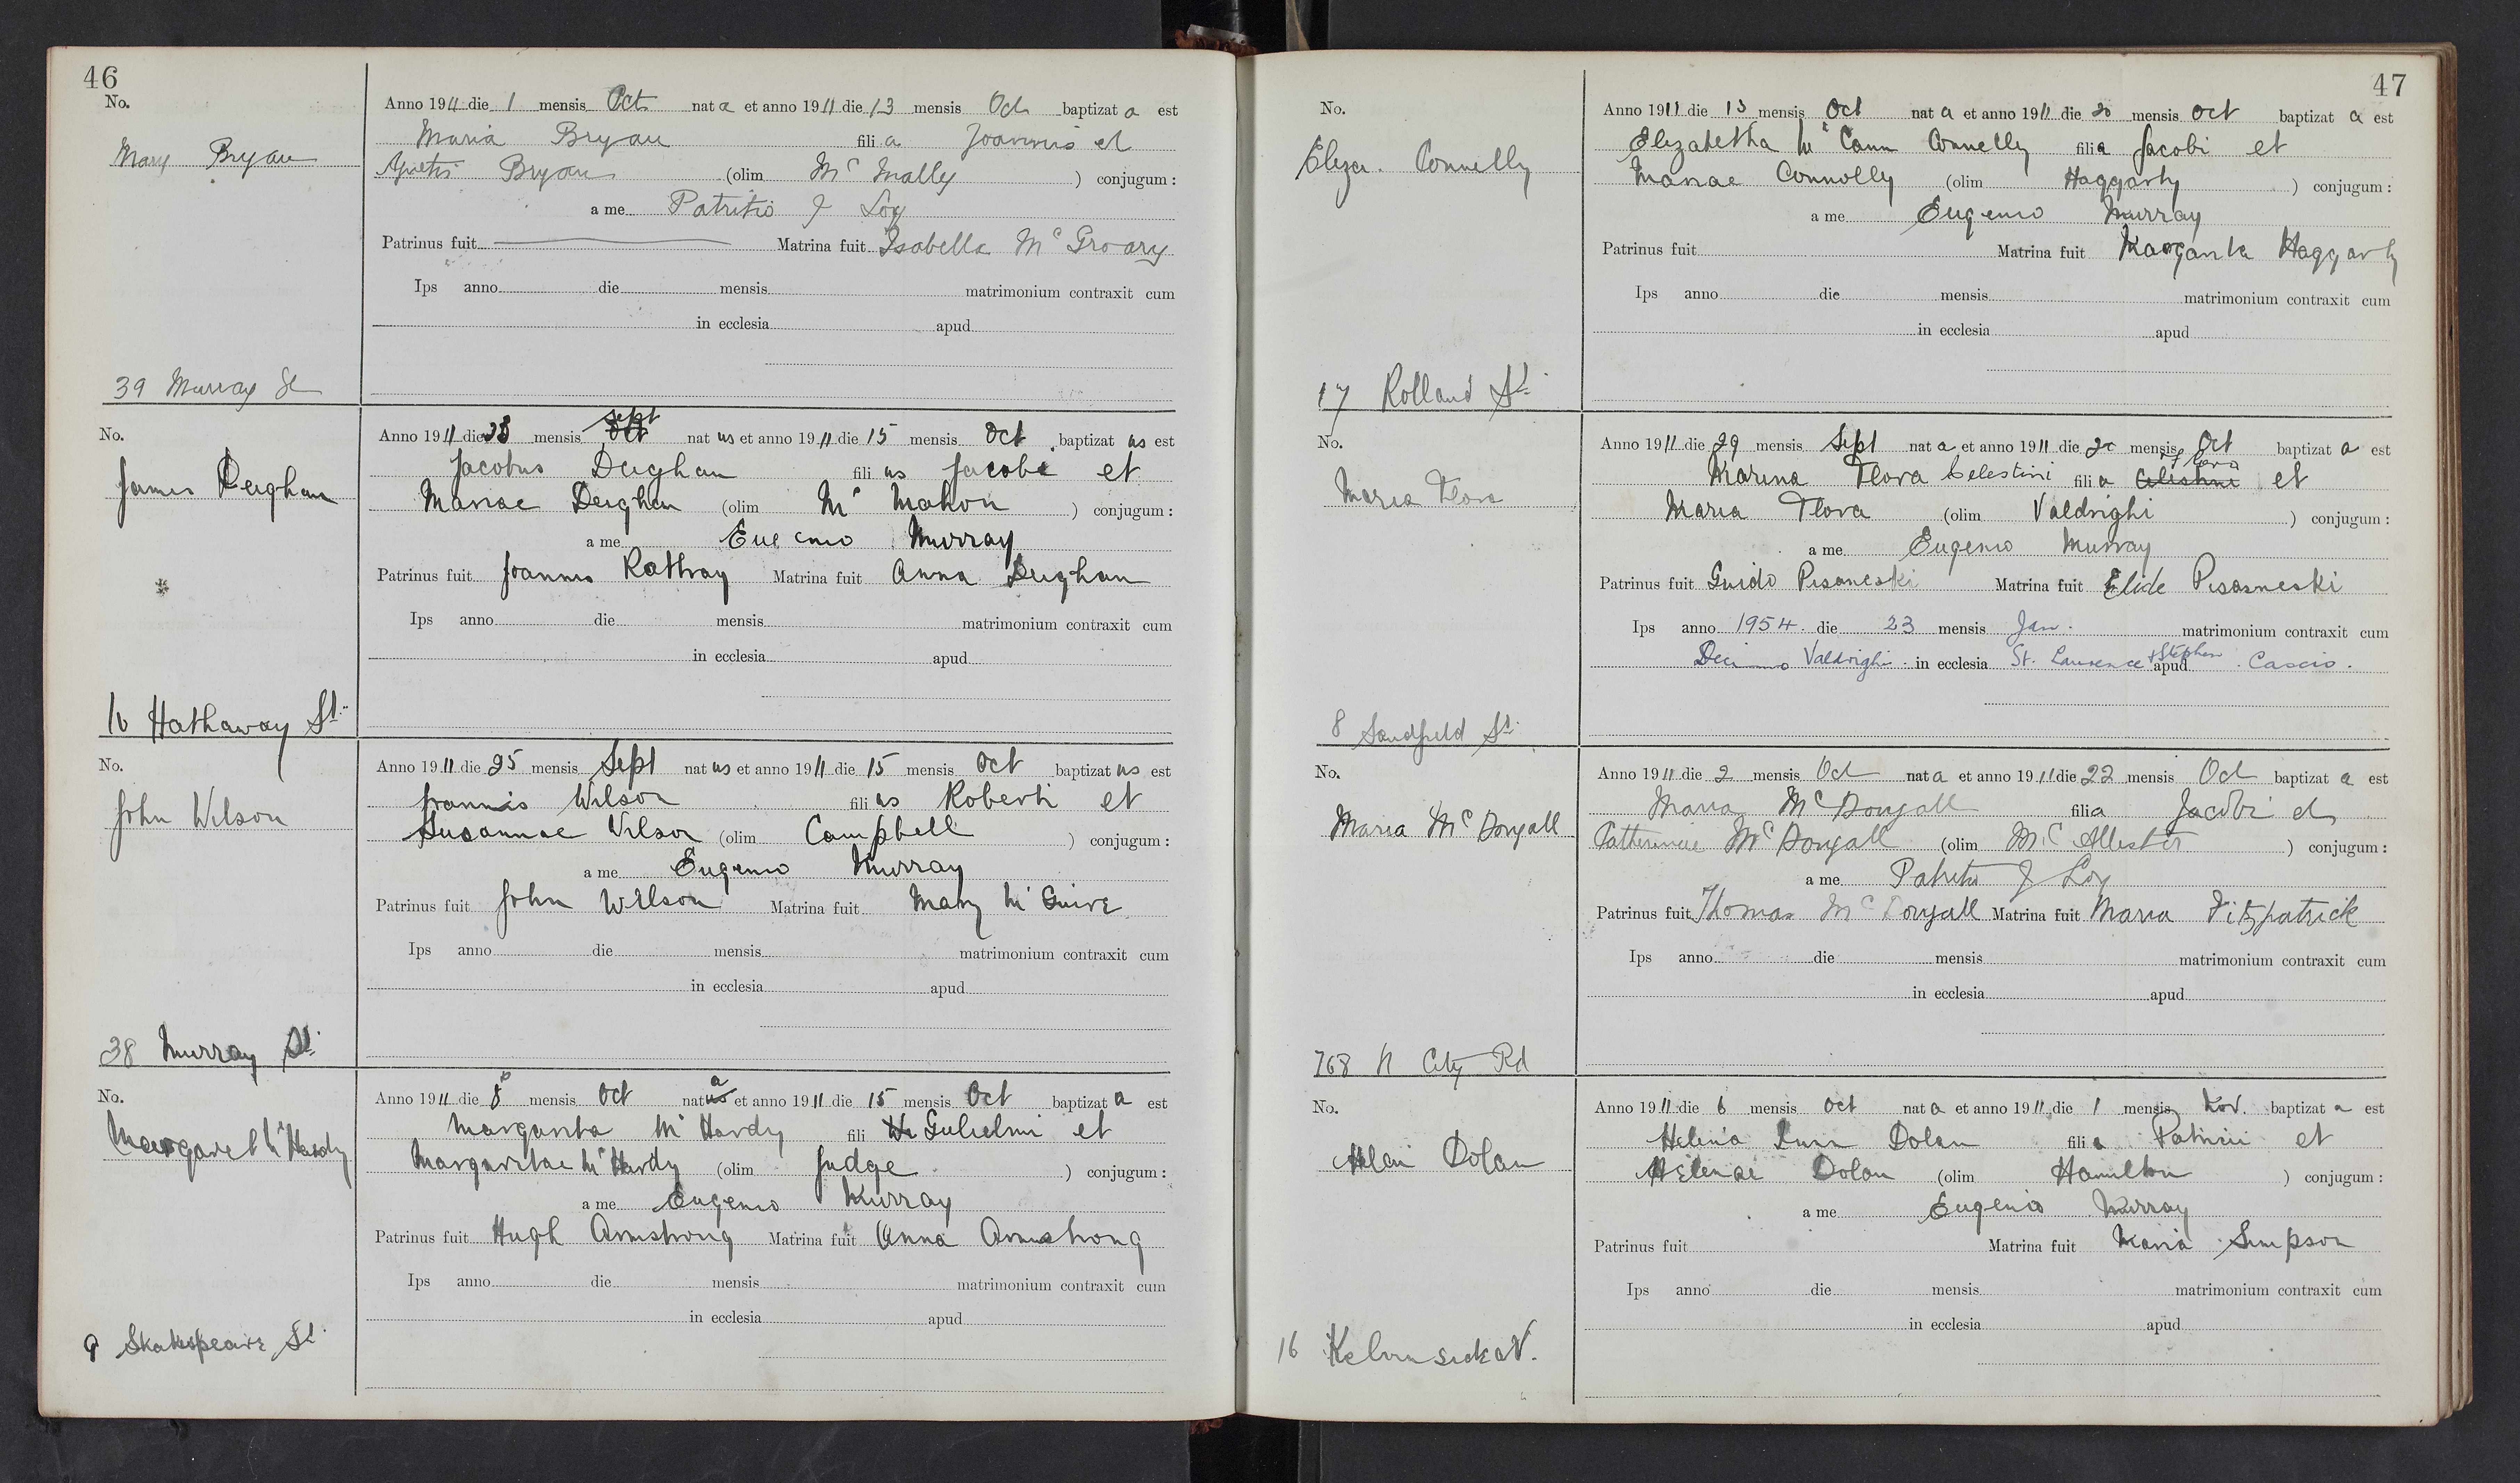 46
No.
Mary Bryan
39 Murray St
Anno 1911 die 1 mensis Oct nat a et anno 1911 die 13 mensis Oct baptizat a est
Maria Bryan fili a Joannis et
Bryan (olim Mc Nally ) conjugum :
a me Patritio J Loy
Patrinus fuit Matrina fuit Isabella Mc Groary
Ips anno die mensis matrimonium contraxit cum
in ecclesia apud
No.
James Deighan
16 Hathaway St.
Anno 1911 die 28 mensis Oct sept nat us et anno 1911 die 15 mensis Oct baptizat us est
Jacobus Deighan fili us Jacobi et
Mariae Deighan (olim Mc Mahon ) conjugum :
a me Eugenio Murray
Patrinus fuit Joannes Rattray Matrina fuit Anna Deighan
Ips anno die mensis matrimonium contraxit cum
in ecclesia apud
No.
John Wilson
38 Murray St.
Anno 1911 die 25 mensis Sept nat us et anno 1911 die 15 mensis Oct baptizat us est
Joannis Wilson fili us Roberti et
Susannae Wilson (olim Campbell ) conjugum :
a me Eugenio Murray
Patrinus fuit John Wilson Matrina fuit Mary Mc Guire
Ips anno die mensis matrimonium contraxit cum
in ecclesia apud
No.
Margaret Mc Hardy
9 Shakespeare St.
Anno 1911 die 8 mensis Oct nat us a et anno 1911 die 15 mensis Oct baptizat a est
Margarita Mc Hardy fili Gulielmi et
Margaritae Mc Hardy (olim Judge ) conjugum :
a me Eugenio Murray
Patrinus fuit Hugh Armstrong Matrina fuit Anna Armstrong
Ips anno die mensis matrimonium contraxit cum
in ecclesia apud
47
No.
Eliza. Connelly
17 Rolland St.
Anno 1911 die 13 mensis Oct nat a et anno 1911 die 20 mensis Oct baptizat a est
Elizabetha Mc Cann Connelly fili a Jacobi et
Mariae Connolly (olim Haggarty ) conjugum :
a me Eugenio Murray
Patrinus fuit Matrina fuit Margarita Haggarty
Ips anno die mensis matrimonium contraxit cum
in ecclesia apud
No.
Maria Flora
8 Sandfield St.
Anno 1911 die 29 mensis Sept nat a et anno 1911 die 20 mensis Oct baptizat a est
Marina Flora Celestini fili a Celestini Flora et
Maria Flora (olim Valdrighi ) conjugum :
a me Eugenio Murray
Patrinus fuit Guido Pisaneski Matrina fuit Elide Pisasneski
Ips anno 1954 die 23 mensis Jan. matrimonium contraxit cum
Decimo Valdrighi in ecclesia St. Laurence + Stephen apud Cascio.
No.
Maria Mc Dongall
768 N City Rd
Anno 1911 die 2 mensis Oct nat a et anno 1911 die 22 mensis Oct baptizat a est
Maria Mc Dougall fili a Jacobi et
Catherinae Mc Dougall (olim Mc Allister ) conjugum :
a me Patritio J Loy
Patrinus fuit Thomas Mc Dougall Matrina fuit Maria Fitzpatrick
Ips anno die mensis matrimonium contraxit cum
in ecclesia apud
No.
Helen Dolan
16 Kelvinside Av.
Anno 1911 die 6 mensis Oct nat a et anno 1911 die 1 mensis Nov. baptizat a est
Helena Dolan fili a Patricii et
Helenae Dolan (olim Hamilton ) conjugum :
a me Eugenio Murray
Patrinus fuit Matrina fuit Maria Simpson
Ips anno die mensis matrimonium contraxit cum
in ecclesia apud